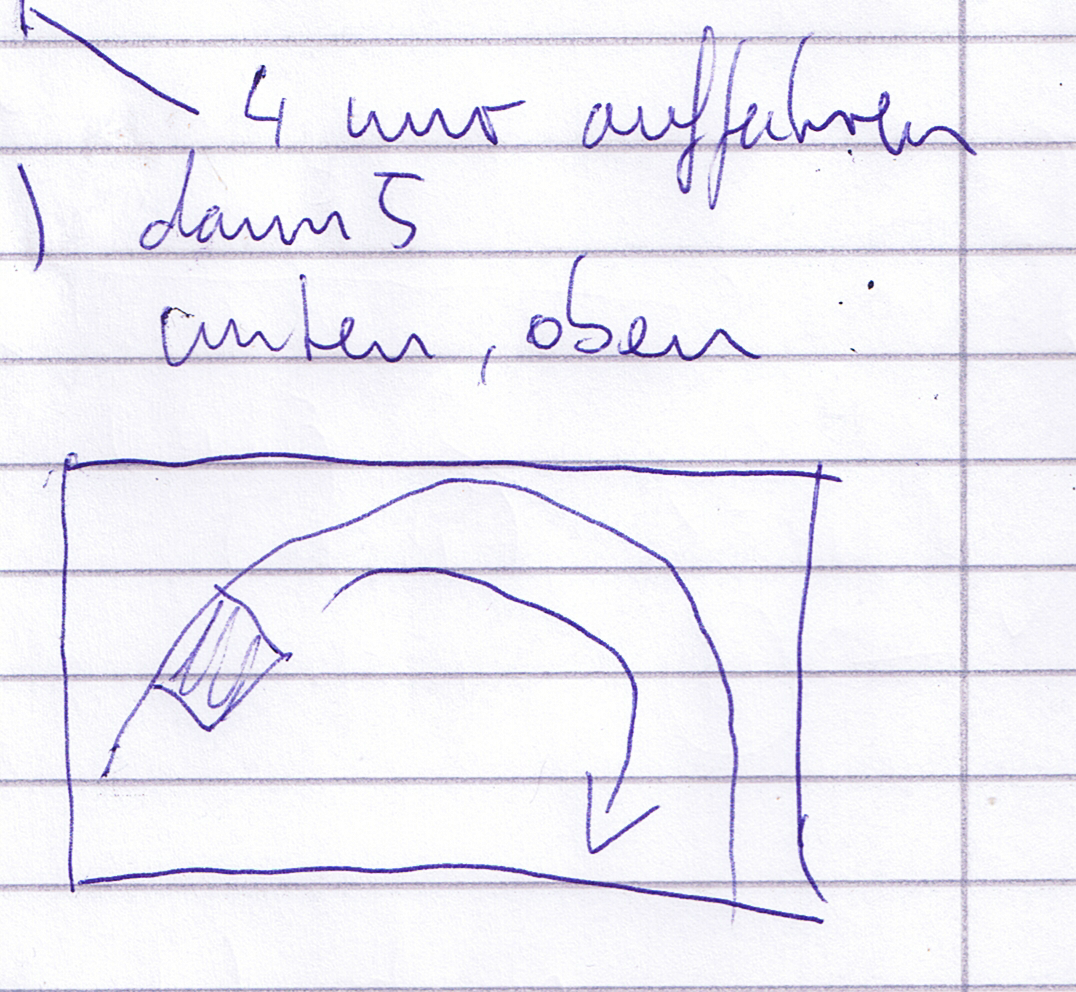 4 nur auffahren
) dann 5
unten, oben